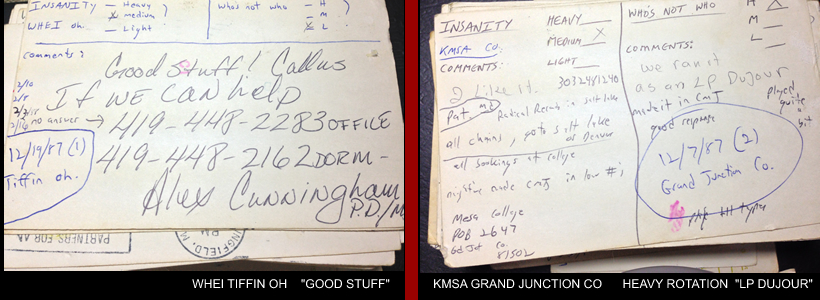 INSANITY — Heavy
x medium
WHEI oh. — Light
Who's not who — H
— M
x L
comments:
Good stuff! Call us
If we can help
2/10
2/8
no answer → 419-448-2283 OFFICE
419-448-2162 DORM -
12/19/87 (1)
Tiffin oh.
Alex Cunningham
P.D/M
PARTNERS FOR AA
NGFIELD, M
PM
INSANITY
KMSA CO.
COMMENTS:
HEAVY
MEDIUM X
LIGHT
I Like it. 3032481240
Pat
Radical Records in salt lake
all chains, gets salt lake
or Denver
all bookings at college
made cmj in low #'s
Mesa College
POB 2647
Gd Jct Co.
81502
WHO'S NOT WHO
H
M
L
COMMENTS:
we ran it
as an LP DuJour
made it in CMJ
played
quite
a
bit
good response
12/7/87 (2)
Grand Junction Co.
WHEI TIFFIN OH "GOOD STUFF"
KMSA GRAND JUNCTION CO HEAVY ROTATION "LP DUJOUR"